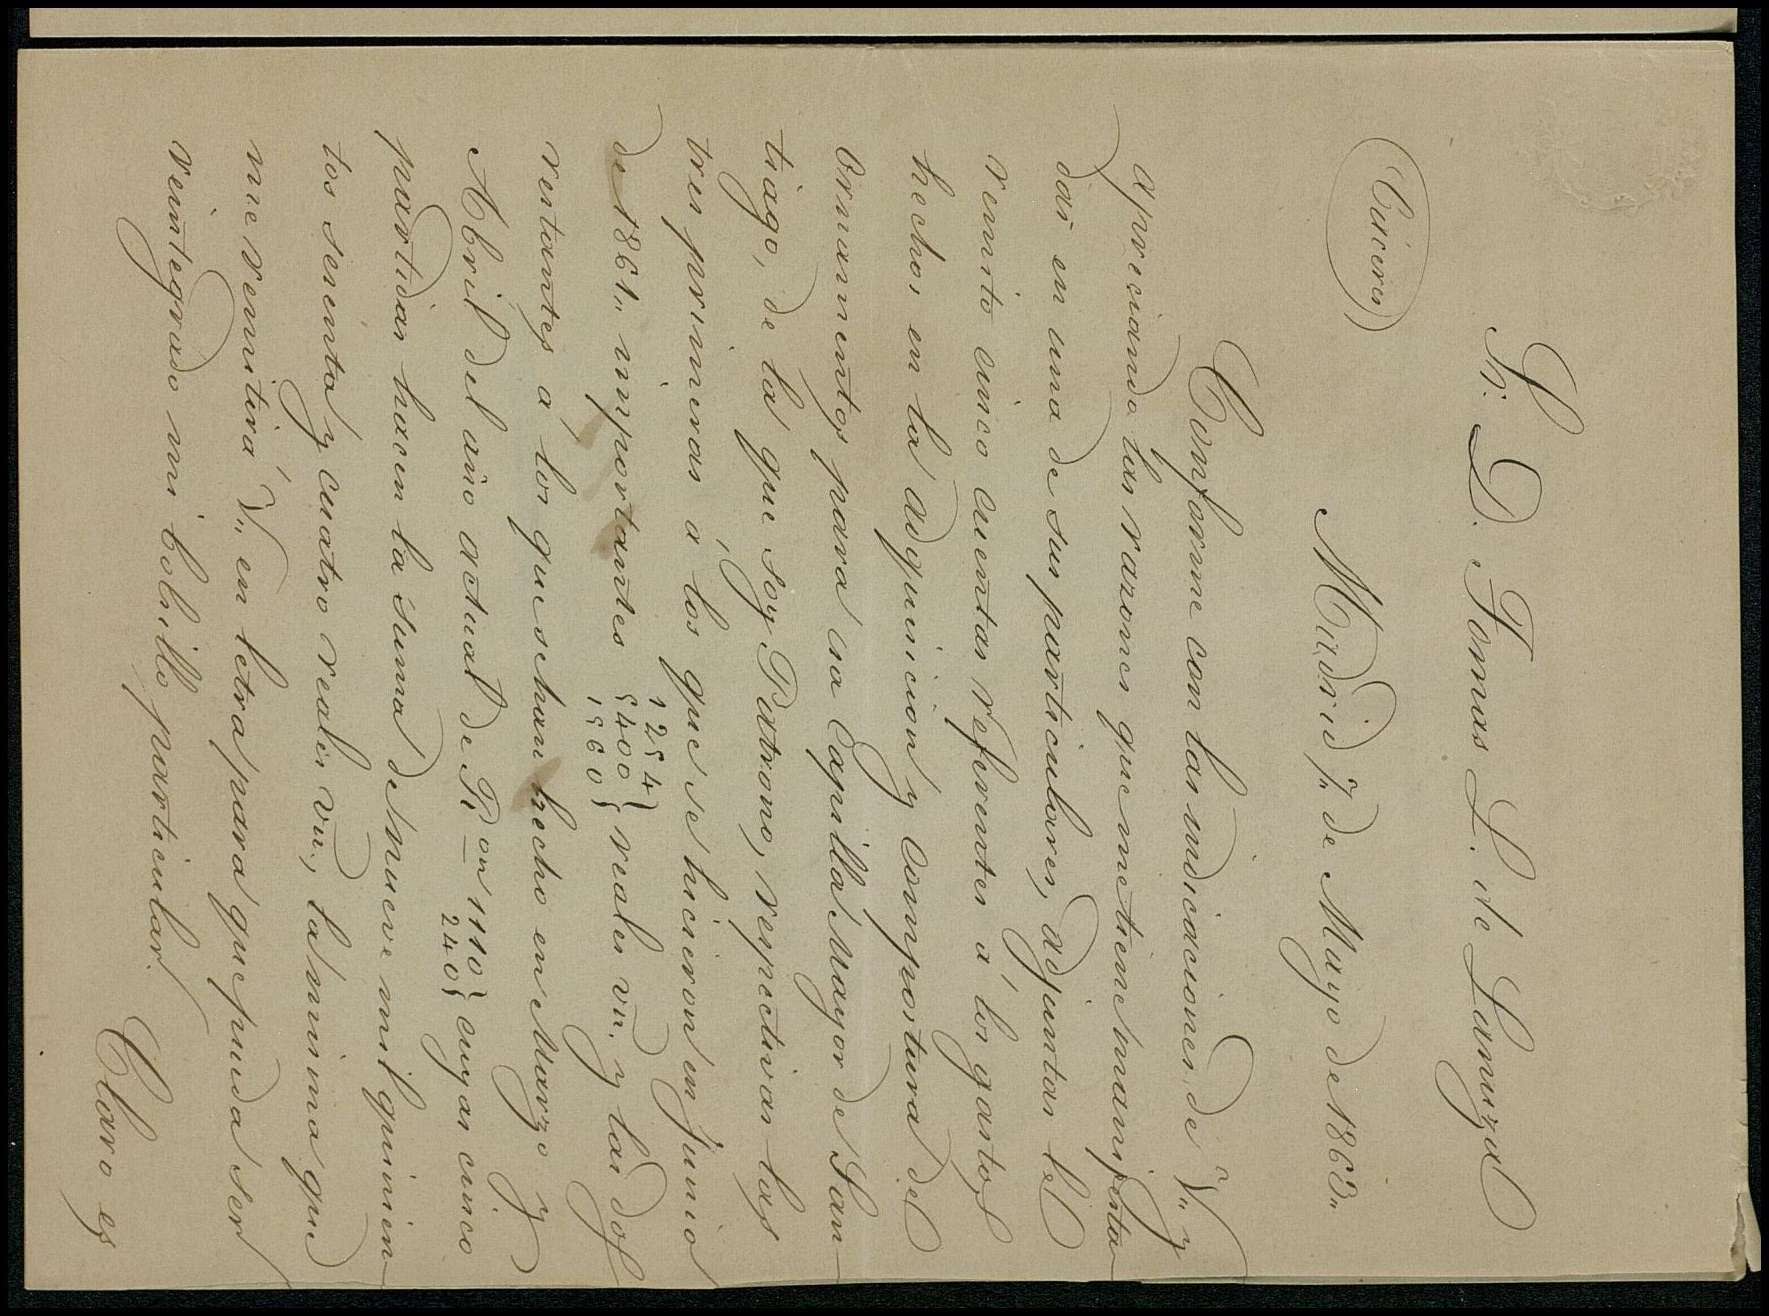 Sr. D. Tomas L. de Lamuza
Madrid 7,, de Mayo de 1863,,
(Cáceres)
Conforme con las indicaciones, de V,, y
apreciando las razones que me tiene manifesta
das en una de sus particulares, adjuntas le
remito cinco cuentas referentes á los gastos
hechos en la adquisicion y compostura de
Ornamentos para esa Capilla Mayor de San-
tiago, de la que soy Patrono, respectivas las
tres primeras á los que se hicieron en junio
de 1861,, importantes { 1254 5400 1560 } reales vn. y las dos
restantes á los que se han hecho en Marzo y
Abril del año actual de R.on 1110 240 } cuyas cinco
partidas hacen la suma de nueve mil quinien-
tos sesenta y cuatro reales vn., la misma que
me remitirá V,, en letra para que pueda ser
reintegrado mi bolsillo particular.
Claro es